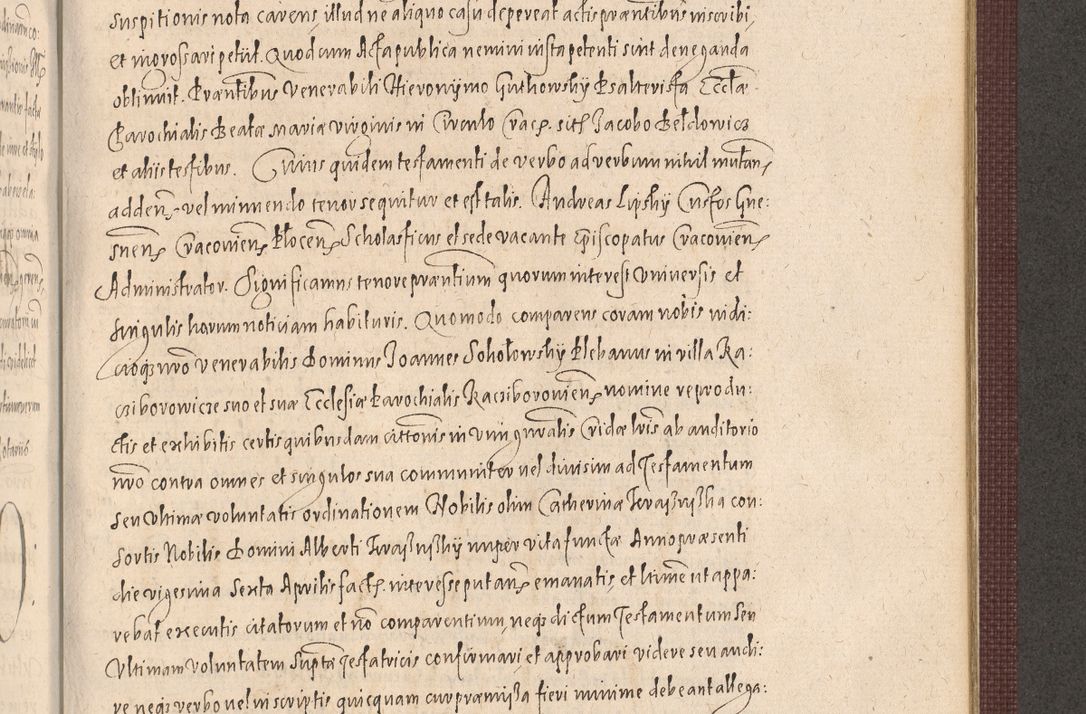 suspitionis nota carens, illud ne aliquo casu depereat actis præntibus inscribi,
et ingrossari petiit. Quod cum Acta publica nemini iusta petenti sint deneganda
obtinuit. Præntibus Venerabili Hieronijmo Guthowskÿ Psalterista Ecclæ
Parochialis Beatæ mariæ virginis in Circulo Crac. sit Jacobo Beldowicz
et aliis testibus. Cuius quidem testamenti de verbo ad verbum nihil mutan
adden vel minuendo tenor sequitur et est talis. Andreas Lipskÿ Custos Gne:
snen Cracovien Plocen Scholasticus et sede vacante Episcopatus Cracovien
Administrator. Significamus tenore præntium quorum interest Universis et
singulis harum notitiam habituris. Quomodo comparens coram nobis iudi:
cioq nro venerabilis Dominus Joannes Sokołowskÿ Plebanus in villa Ra:
cziborowicze suo et suæ Ecclesiæ Parochialis Racziborovien nomine reprodu:
ctis et exhibitis certis quibusdam cittonis in vim gnralis Cridæ lris ab auditorio
nro contra omnes et singulos sua communiter vel divisim ad Testamentum
seu Ultimæ voluntatis ordinationem Nobilis olim Catherinæ con:
sortis Nobilis Domini Alberti nuper vita functæ Anno præsenti
die vigesima Sexta Aprilis fact. interesse putan emanatis, et ltime ut appa:
rebat executis citatorum et no comparentium, neq dictum Testamentum seu
Ultimam voluntatem Suptæ Testatricis confirmari, et approbari videre seu audi:
re neq verbo vel in scriptis quicquam cur præmissa fieri minime debeant allega: